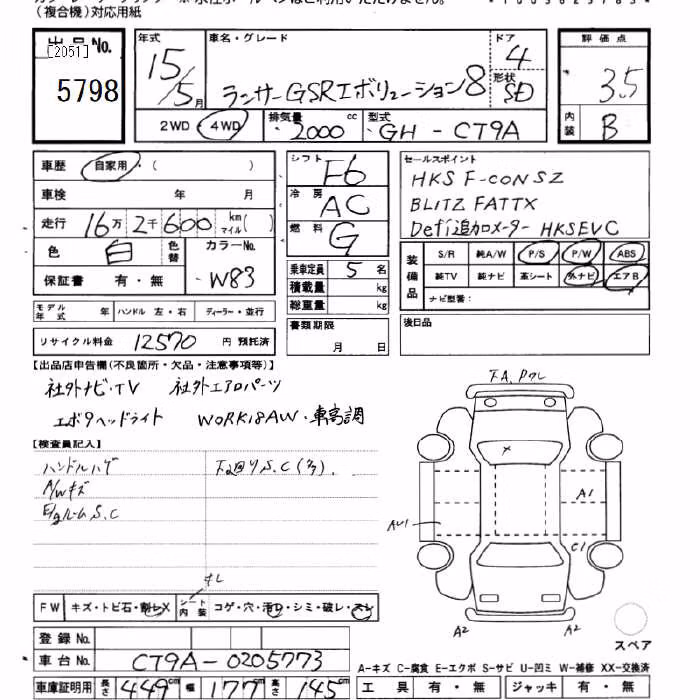 (複合機)対応用紙
出品No.
[2051]
5798
年式
15/5月
車名・グレード
ランサーGSRエボリューション8
ドア
4
形状
SD
評価点
3.5
内装
B
2WD・4WD
排気量
2000cc
型式
GH-CT9A
車歴
自家用・( )
車検 年 月
走行 16万2千600km マイル( )
色 白 色替
カラーNo.
W83
保証書 有・無
シフト
F6
冷房
AC
燃料
G
乗車定員 5名
積載量 kg
総重量 kg
書類期限
月 日
セールスポイント
HKS F-CON SZ
BLITZ FATTX
Defi追加メーター HKSEVC
装備品
S/R 純A/W P/S P/W ABS
純TV 純ナビ 革シート 外ナビ エアB
ナビ型番:
後日品
モデル年式 年 ハンドル 左・右 ディーラー・並行
リサイクル料金 12570 円 預託済
【出品店申告欄(不良箇所・欠品・注意事項等)】
社外ナビ・TV 社外エアロパーツ
エボ9ヘッドライト WORK18AW・車高調
【検査員記入】
ハンドルハゲ
A/Wキズ
E/gルームS.C
下廻りS.C(多).
F.A.
A1
AU1
C1
A2
A2
スペア
FW キズ・トビ石・割レX
シート内装 コゲ・穴・汚レ・シミ・破レ・スレ
登録No.
車台No. CT9A-0205773
A-キズ C-腐食 E-エクボ S-サビ U-凹ミ W-補修 XX-交換済
車庫証明用 長さ 449cm 幅 177cm 高さ 145cm
工具 有・無 ジャッキ 有・無